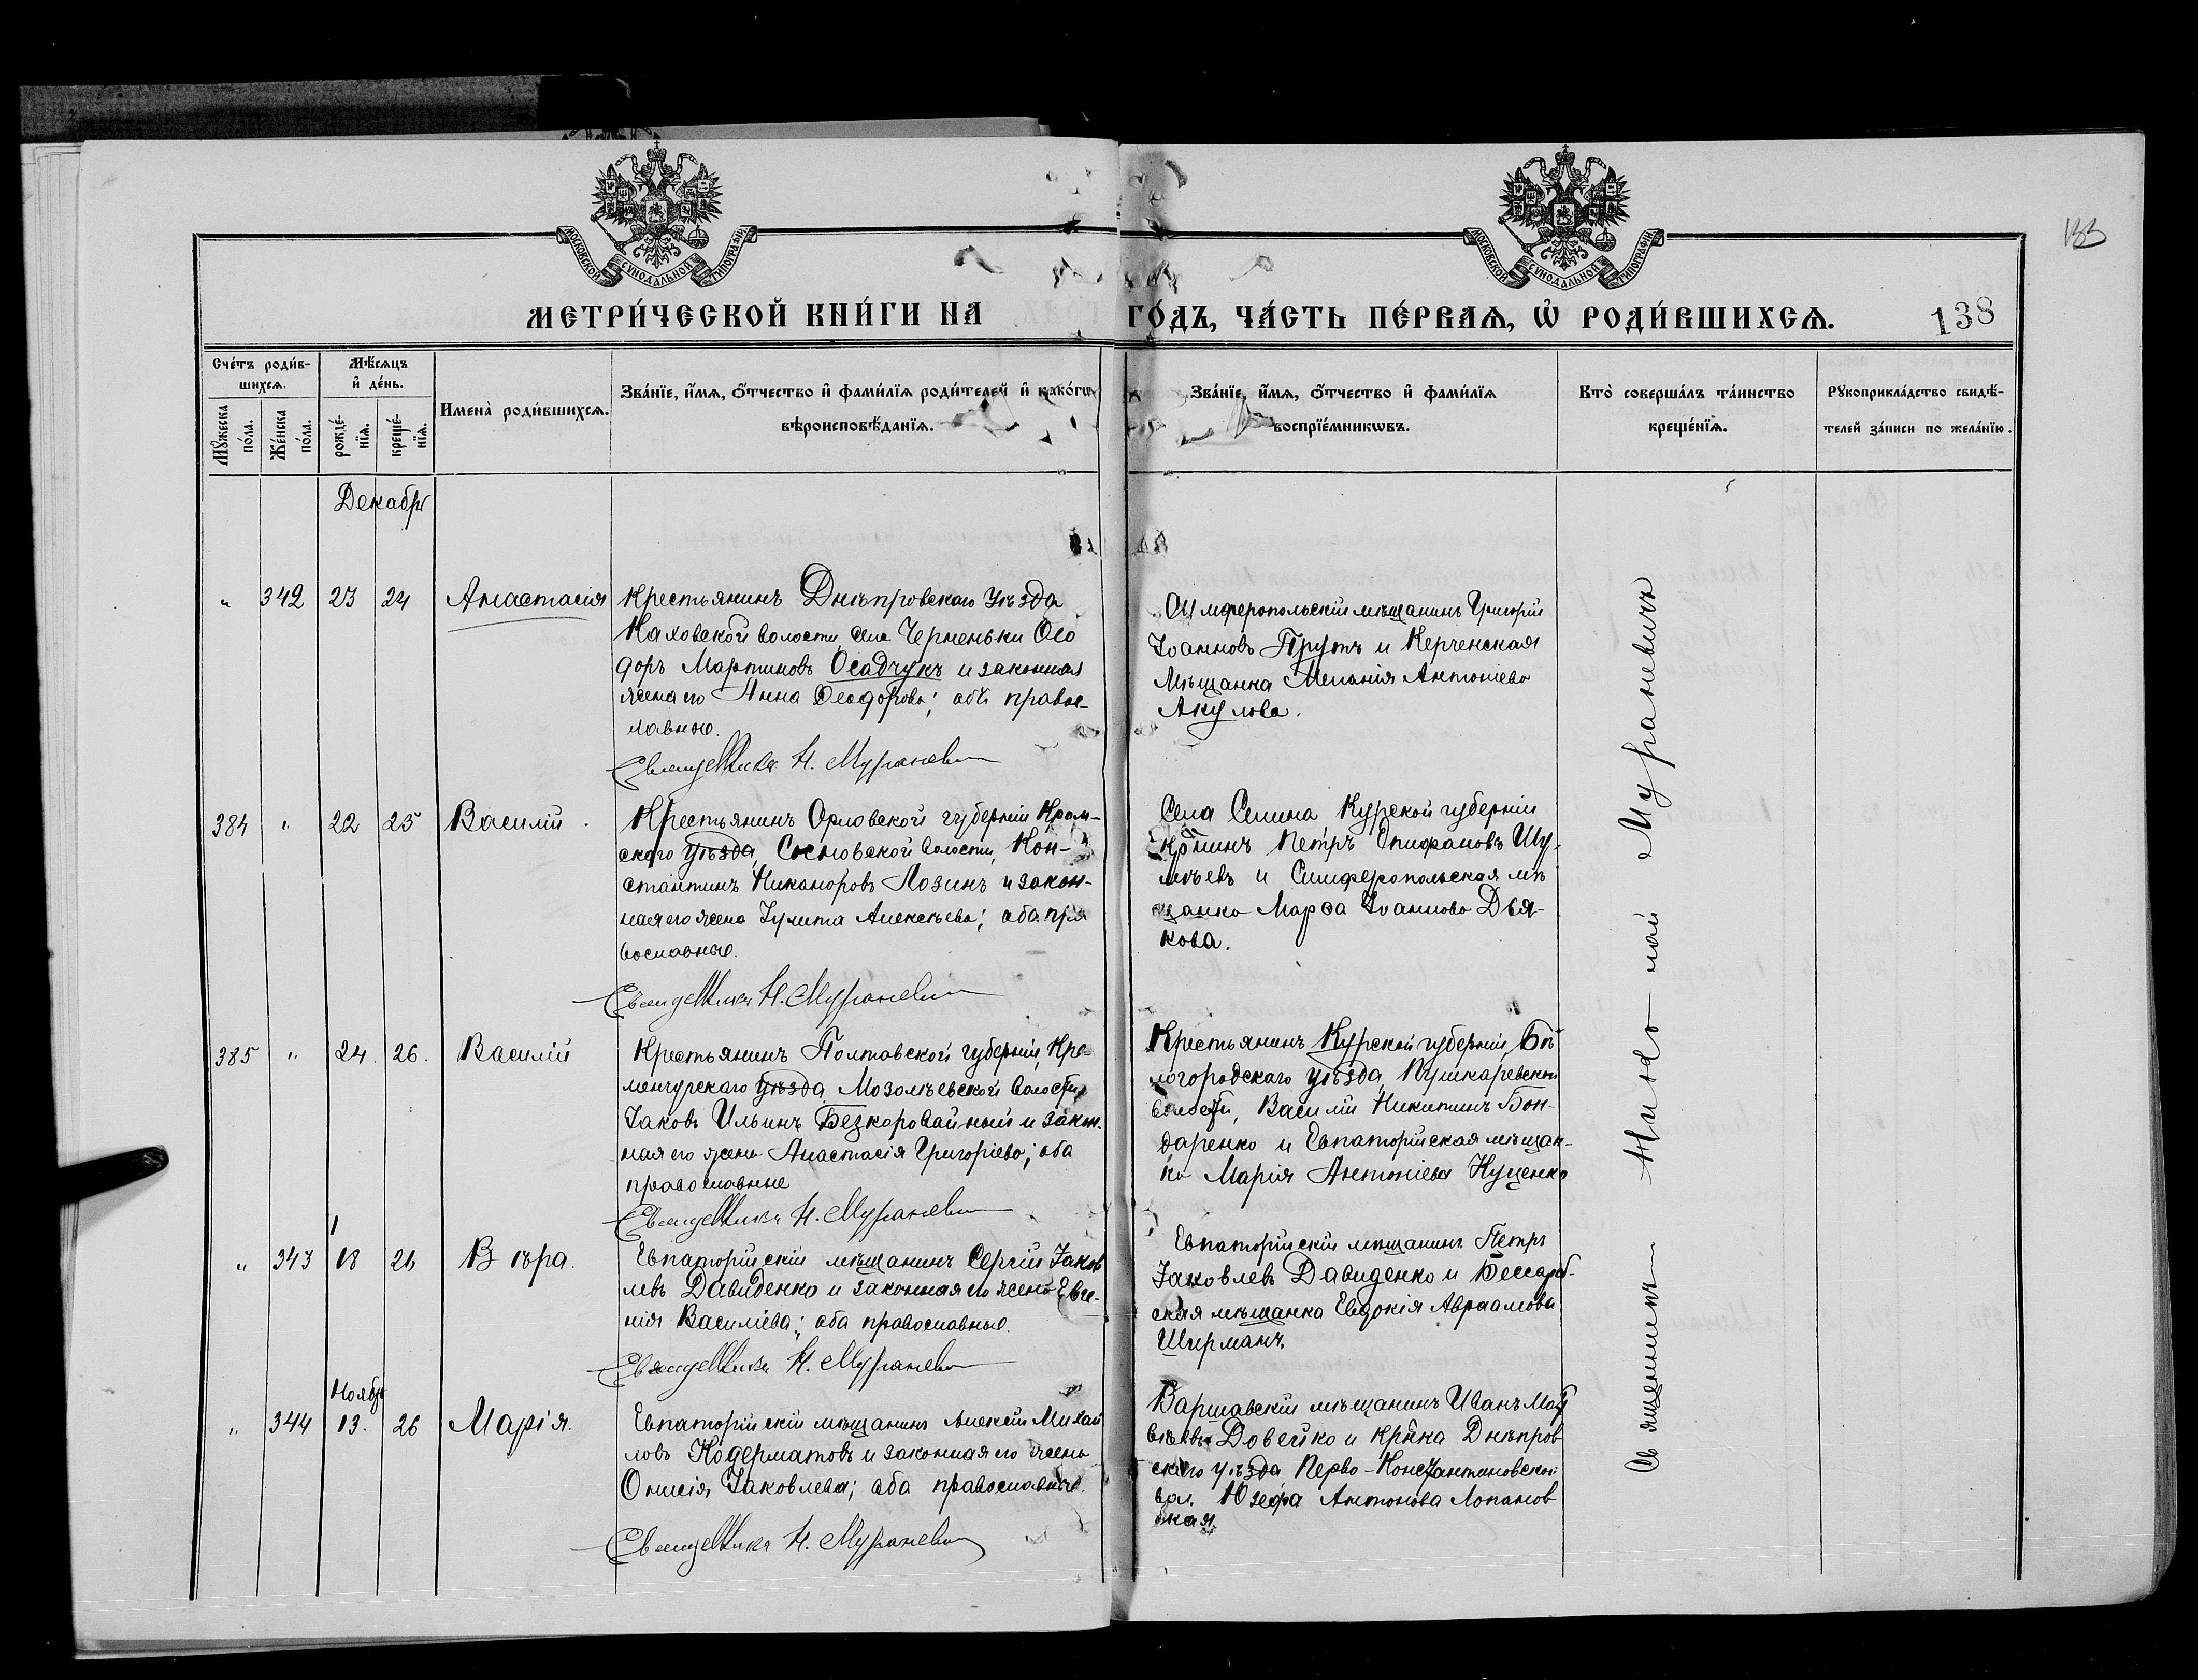 133
МОСКОВСКОЙ СУНОДАЛЬНОЙ ТИПОГРАФІИ
МОСКОВСКОЙ СУНОДАЛЬНОЙ ТИПОГРАФІИ
МЕТРИ́ЧЕСКОЙ КНИ́ГИ НА ГО́ДЪ, ЧА́СТЬ ПЕ́РВАЯ, Ѡ҆ РОДИ́ВШИХСЯ.
138
Сче́тъ роди́в-
шихся.
Мꙋжеска по́ла.
Же́нска по́ла.
Мѣ́сяцъ
и҆ де́нь.
рожде́-
нїя.
креще́-
нїя.
Имена̀ роди́вшихся.
Зва́нїе, и҆́мя, ѻ҆́тчество и҆ фами́лїя роди́телей и҆ како́гѡ
вѣроисповѣ́данїя.
Зва́нїе, и҆́мя, ѻ҆́тчество и҆ фами́лїя
воспрїе́мникѡвъ.
Кто̀ соверша́лъ та́инство
креще́нїя.
Рꙋкоприкла́дство свидѣ́-
телей за́писи по жела́нїю.
Декабрь
" 342 23 24 Анастасія
Крестьянинъ Днѣпровскаго уѣзда
Каховской волости, села Черненьки Ѳео
доръ Мартиновъ Осадчукъ и законная
жена его Анна Ѳеодорова; оба правос-
лавные.
Н. Мураневич
Симферопольскій мѣщанинъ Григорій
Іоанновъ Прутъ и Керченская
Мѣщанка Меланія Антоніева
Акулова.
384 " 22 25 Василій
Крестьянинъ Орловской губерніи Кром-
скаго уѣзда, Сосновской волости, Кон-
стантинъ Никаноровъ Лозинъ и закон-
ная его жена Іулита Алексѣева; оба пра
вославные.
Н. Мураневич
Села Селина Курской губерніи
кр̃нинъ Петръ Епифановъ Шу-
мѣевъ и Симферопольская мѣ
щанка Марѳа Іоаннова Дья-
кова.
385 " 24. 26. Василій
Крестьянинъ Полтавской губерніи, Кре-
менчугскаго уѣзда Мозолѣевской волости
Іаковъ Ильинъ Безкоровайный и закон-
ная его жена Анастасія Григоріева; оба
православные
Н. Мураневич
Крестьянинъ Курской губерніи, Бѣ
логородскаго уѣзда, Пушкаревской
волости, Василій Никитинъ Бон-
даренко и Евпаторійская мѣщан-
ка Марія Антоніева Куценко
" 343 18 26 Вѣра.
Евпаторійскій мѣщанинъ Сергій Іаков
левъ Давиденко и законная его жена Евге-
нія Василіева; оба православные.
Н. Мураневич
Евпаторійскій мѣщанинъ Петръ
Іаковлевъ Давиденко и Бессараб-
ская мѣщанка Евдокія Авраамова
Ширманъ.
Ноябрь
" 344 13. 26 Марія.
Евпаторійскій мѣщанинъ Алексій Михаи
ловъ Кодерматовъ и законная его жена
Онисія Іаковлева; оба православные.
Н. Мураневич
Варшавскій мѣщанинъ Иванъ Мат
вѣевъ Довейко и кр̃нка Днѣпров
скаго уѣзда Перво-Константиновской
вол. Юзефа Антонова Лопанов
ская.
Священникъ Николай Мураневичъ